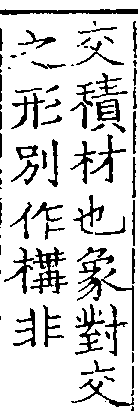 交積材也象對交
之形別作構非